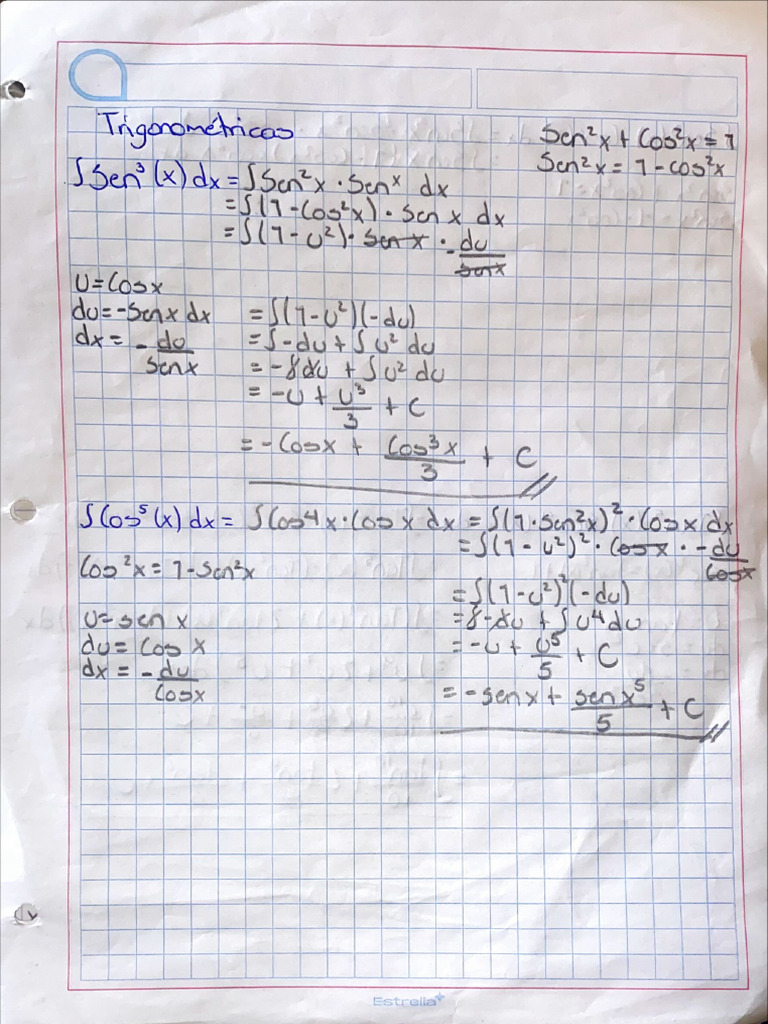 Trigonométricas
Sen²x + Cos²x = 1
Sen²x = 1 - cos²x
∫Sen³(x)dx = ∫Sen²x · Senˣ dx
= ∫(1-Cos²x) · Sen x dx
= ∫(1-U²) · sen x · - du/senx
U = Cos x
du = -Sen x dx
dx = - du/Senx
= ∫(1-U²)(-du)
= ∫-du + ∫u² du
= -∫du + ∫u² du
= -U + U³/3 + C
= -Cos x + Cos³x/3 + C
∫Cos⁵(x)dx = ∫Cos4x · Cos x dx = ∫(1·Sen²x)² · Cos x dx
= ∫(1-U²)² · Cos x · - du/Cosx
Cos²x = 1-Sen²x
U = sen x
du = Cos x
dx = - du/Cosx
= ∫(1-U²)²(-du)
= ∫-du + ∫U⁴du
= -U + U⁵/5 + C
= -sen x + senx⁵/5 + C
Estrella